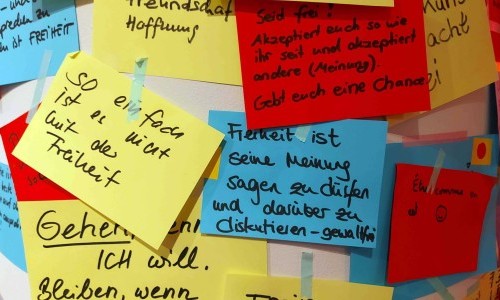 ist FREIHEIT
Freundschaf
Hoffnung
Seid frei!
Akzeptiert euch so wie
ihr seit und akzeptiert
andere (Meinung).
Gebt euch eine Chance
acht
So einfach
ist es nicht
mit der
Freiheit
Freiheit ist
seine Meinung
sagen zu dürfen
und darüber zu
diskutieren - gewaltfrei
Gehen, wenn
ICH will.
Bleiben, wenn